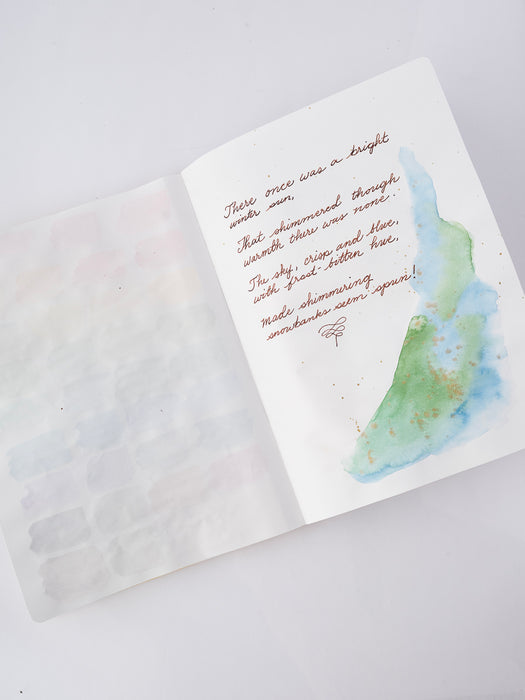 There once was a bright
winter sun,
That shimmered though
warmth there was none.
The sky, crisp and blue,
with frost-bitten hue,
made shimmering
snowbanks seem spun!